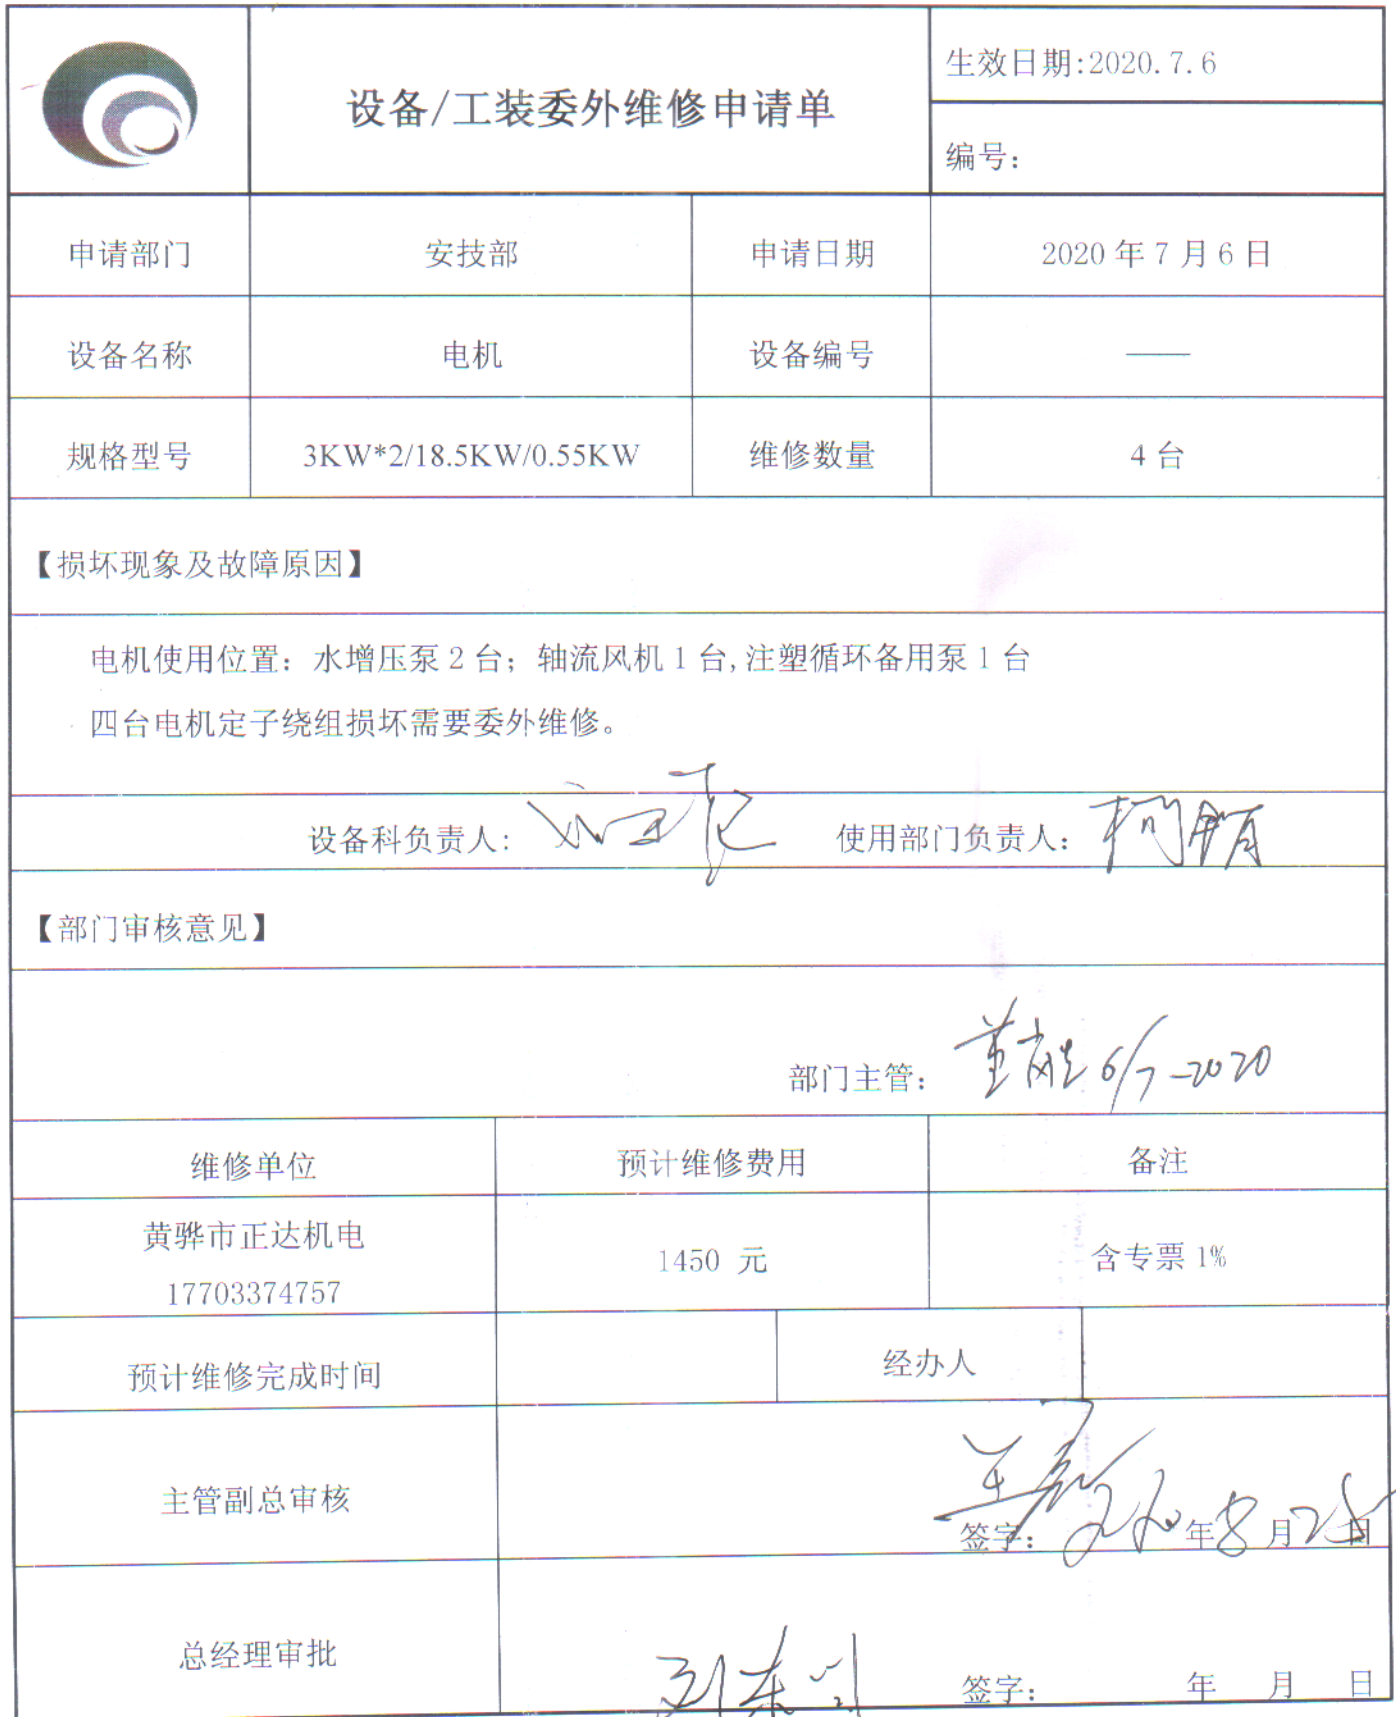 设备/工装委外维修申请单
生效日期:2020.7.6
编号:
申请部门 安技部 申请日期 2020年7月6日
设备名称 电机 设备编号 ——
规格型号 3KW*2/18.5KW/0.55KW 维修数量 4台
【损坏现象及故障原因】
电机使用位置：水增压泵2台；轴流风机1台,注塑循环备用泵1台
四台电机定子绕组损坏需要委外维修。
设备科负责人: 使用部门负责人:
【部门审核意见】
部门主管: 6/7-2020
维修单位 预计维修费用 备注
黄骅市正达机电
17703374757
1450 元 含专票1%
预计维修完成时间 经办人
主管副总审核
签字: 年8月25日
总经理审批
签字: 年 月 日